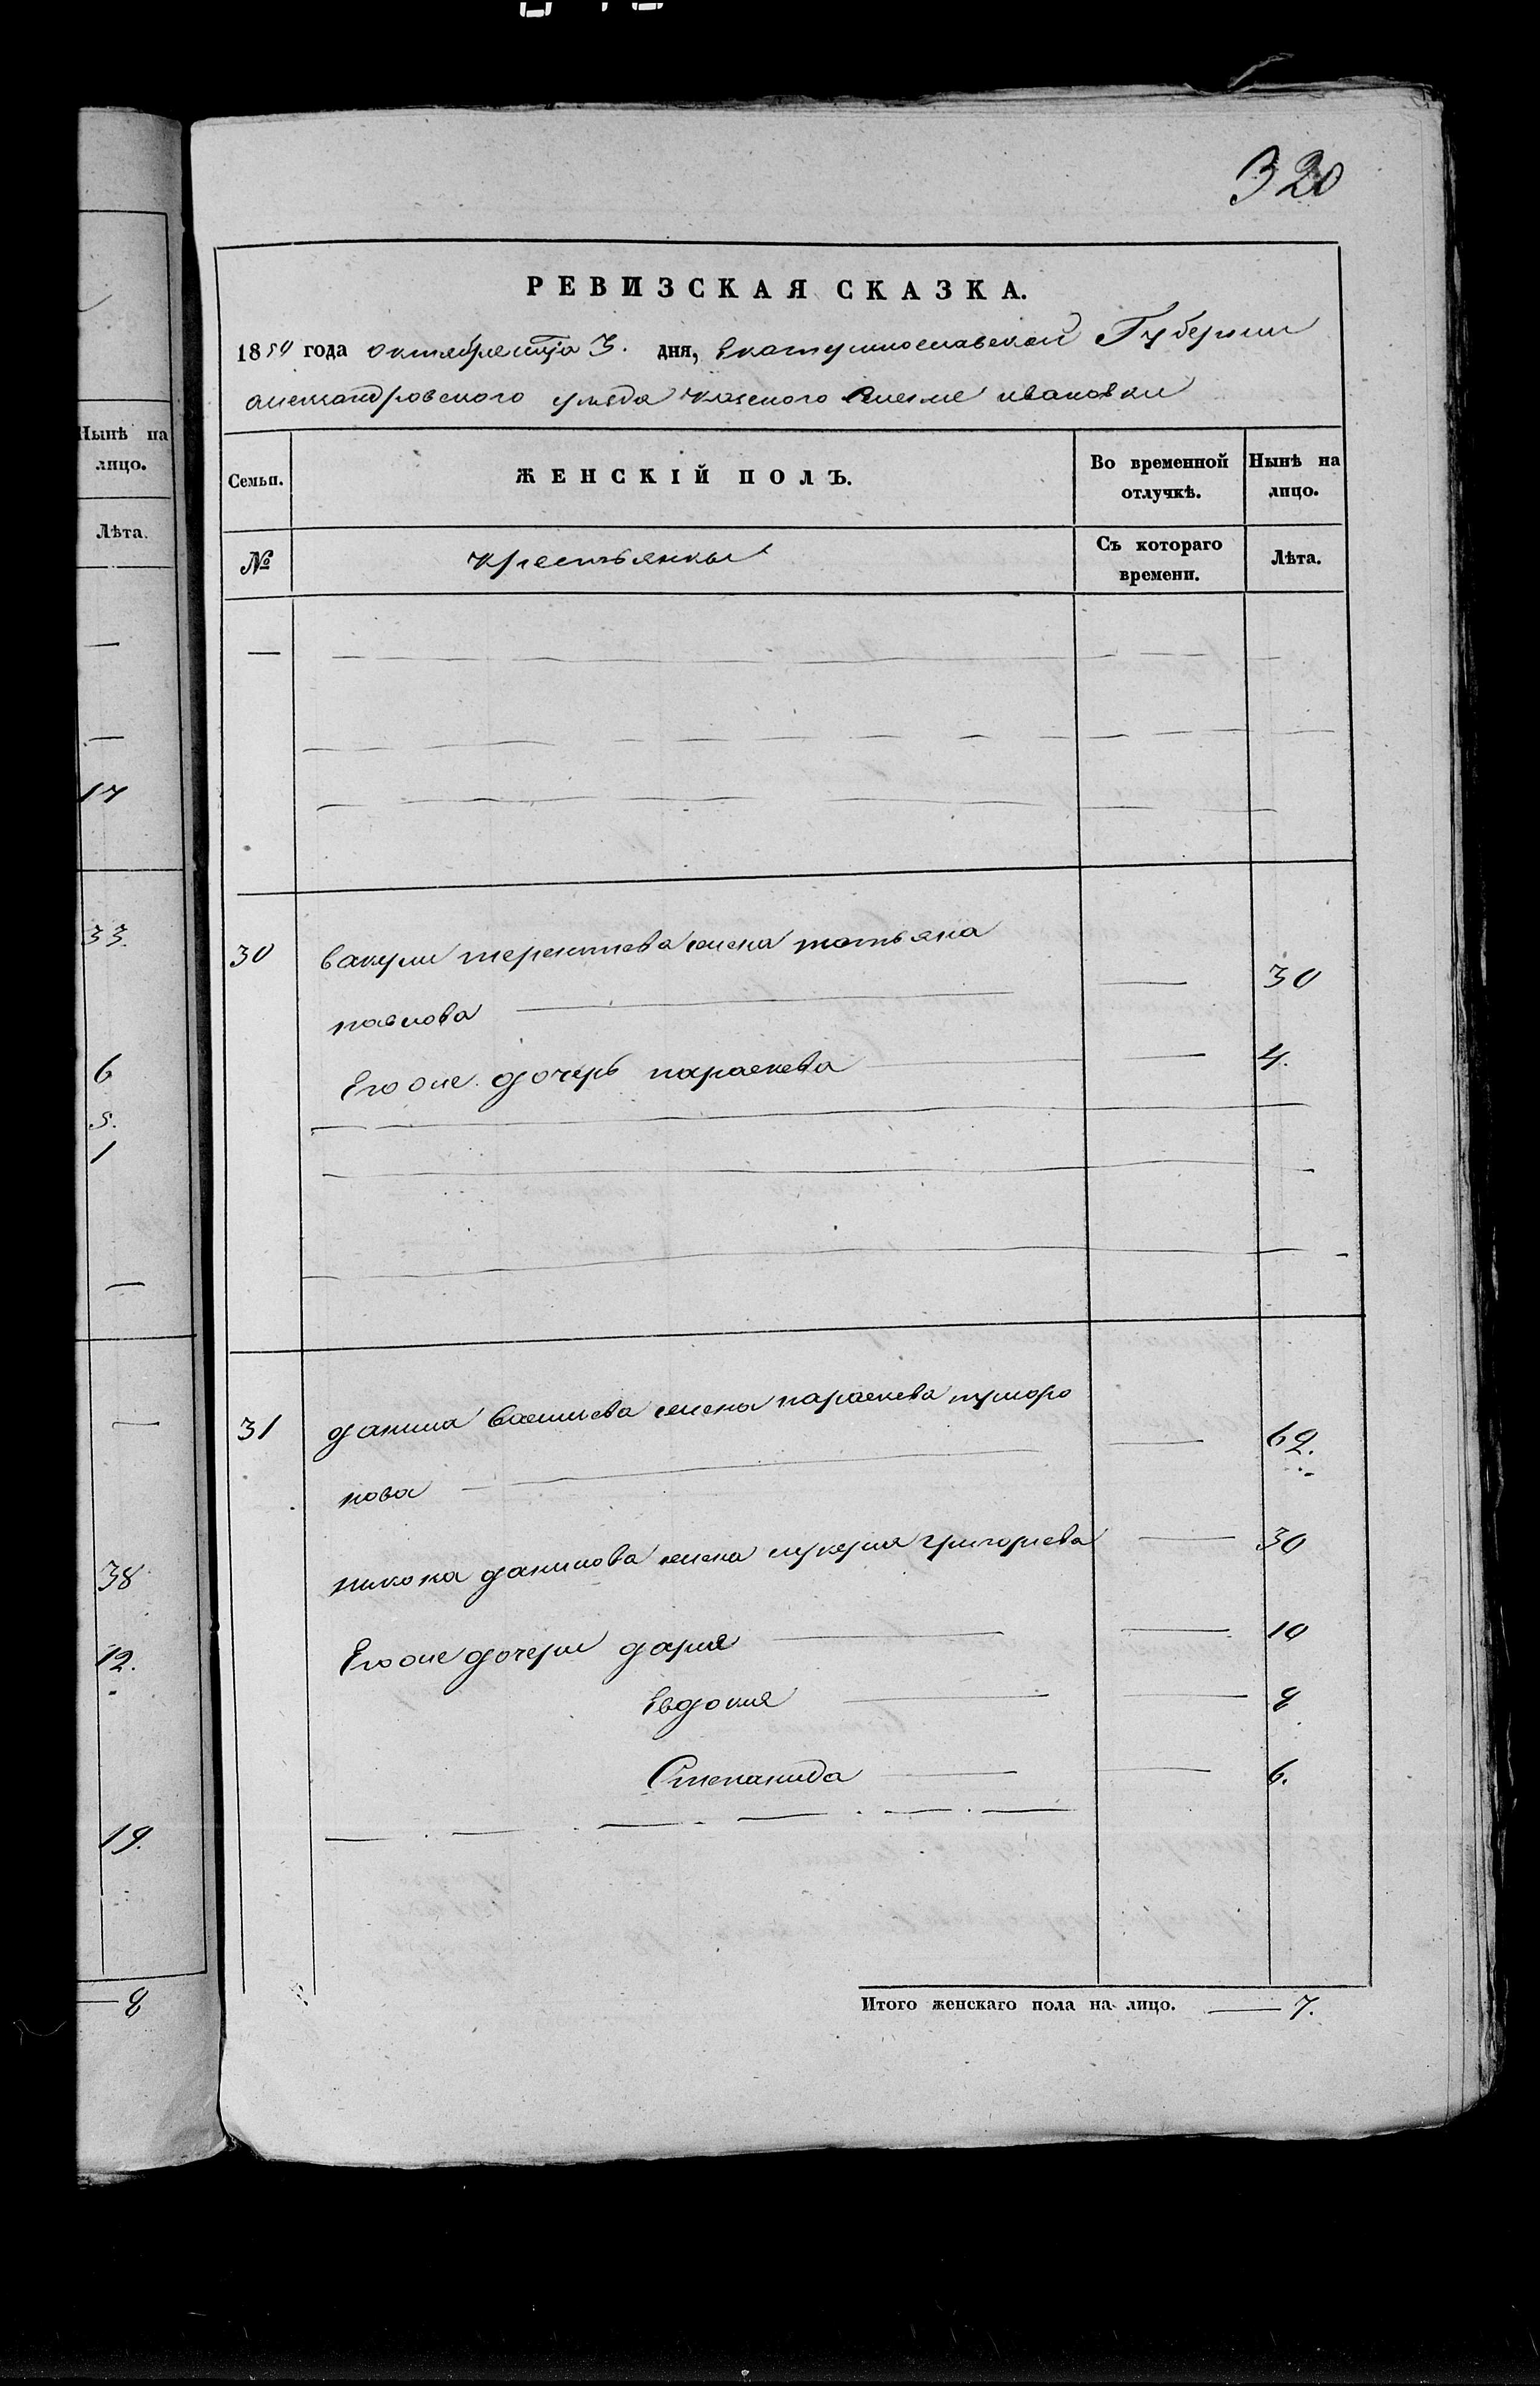 Нынѣ на
лицо.
Лѣта.
—
—
17
33.
6
5.
1
—
—
38
12.
19.
— 8
320
РЕВИЗСКАЯ СКАЗКА.
1850 года октебре мца 3. дня, Екатеринославской Губернии
александровского уезда ивановки
Семьи. ЖЕНСКІЙ ПОЛЪ. Во временной отлучкѣ. Нынѣ на лицо.
№ крестьянки Съ котораго времени. Лѣта.
30 вакули терентиева жена татьяна
павлова — — 30
Его же дочерь параскева — — 4.
31 данила василиева жена параскева триоро
нова — — 62.
никона данилова жена лукерия григориева — 30
Его же дочери дария — — 10
Евдокия — — 8
Степанида — — 6.
Итого женскаго пола на лицо. — 7.